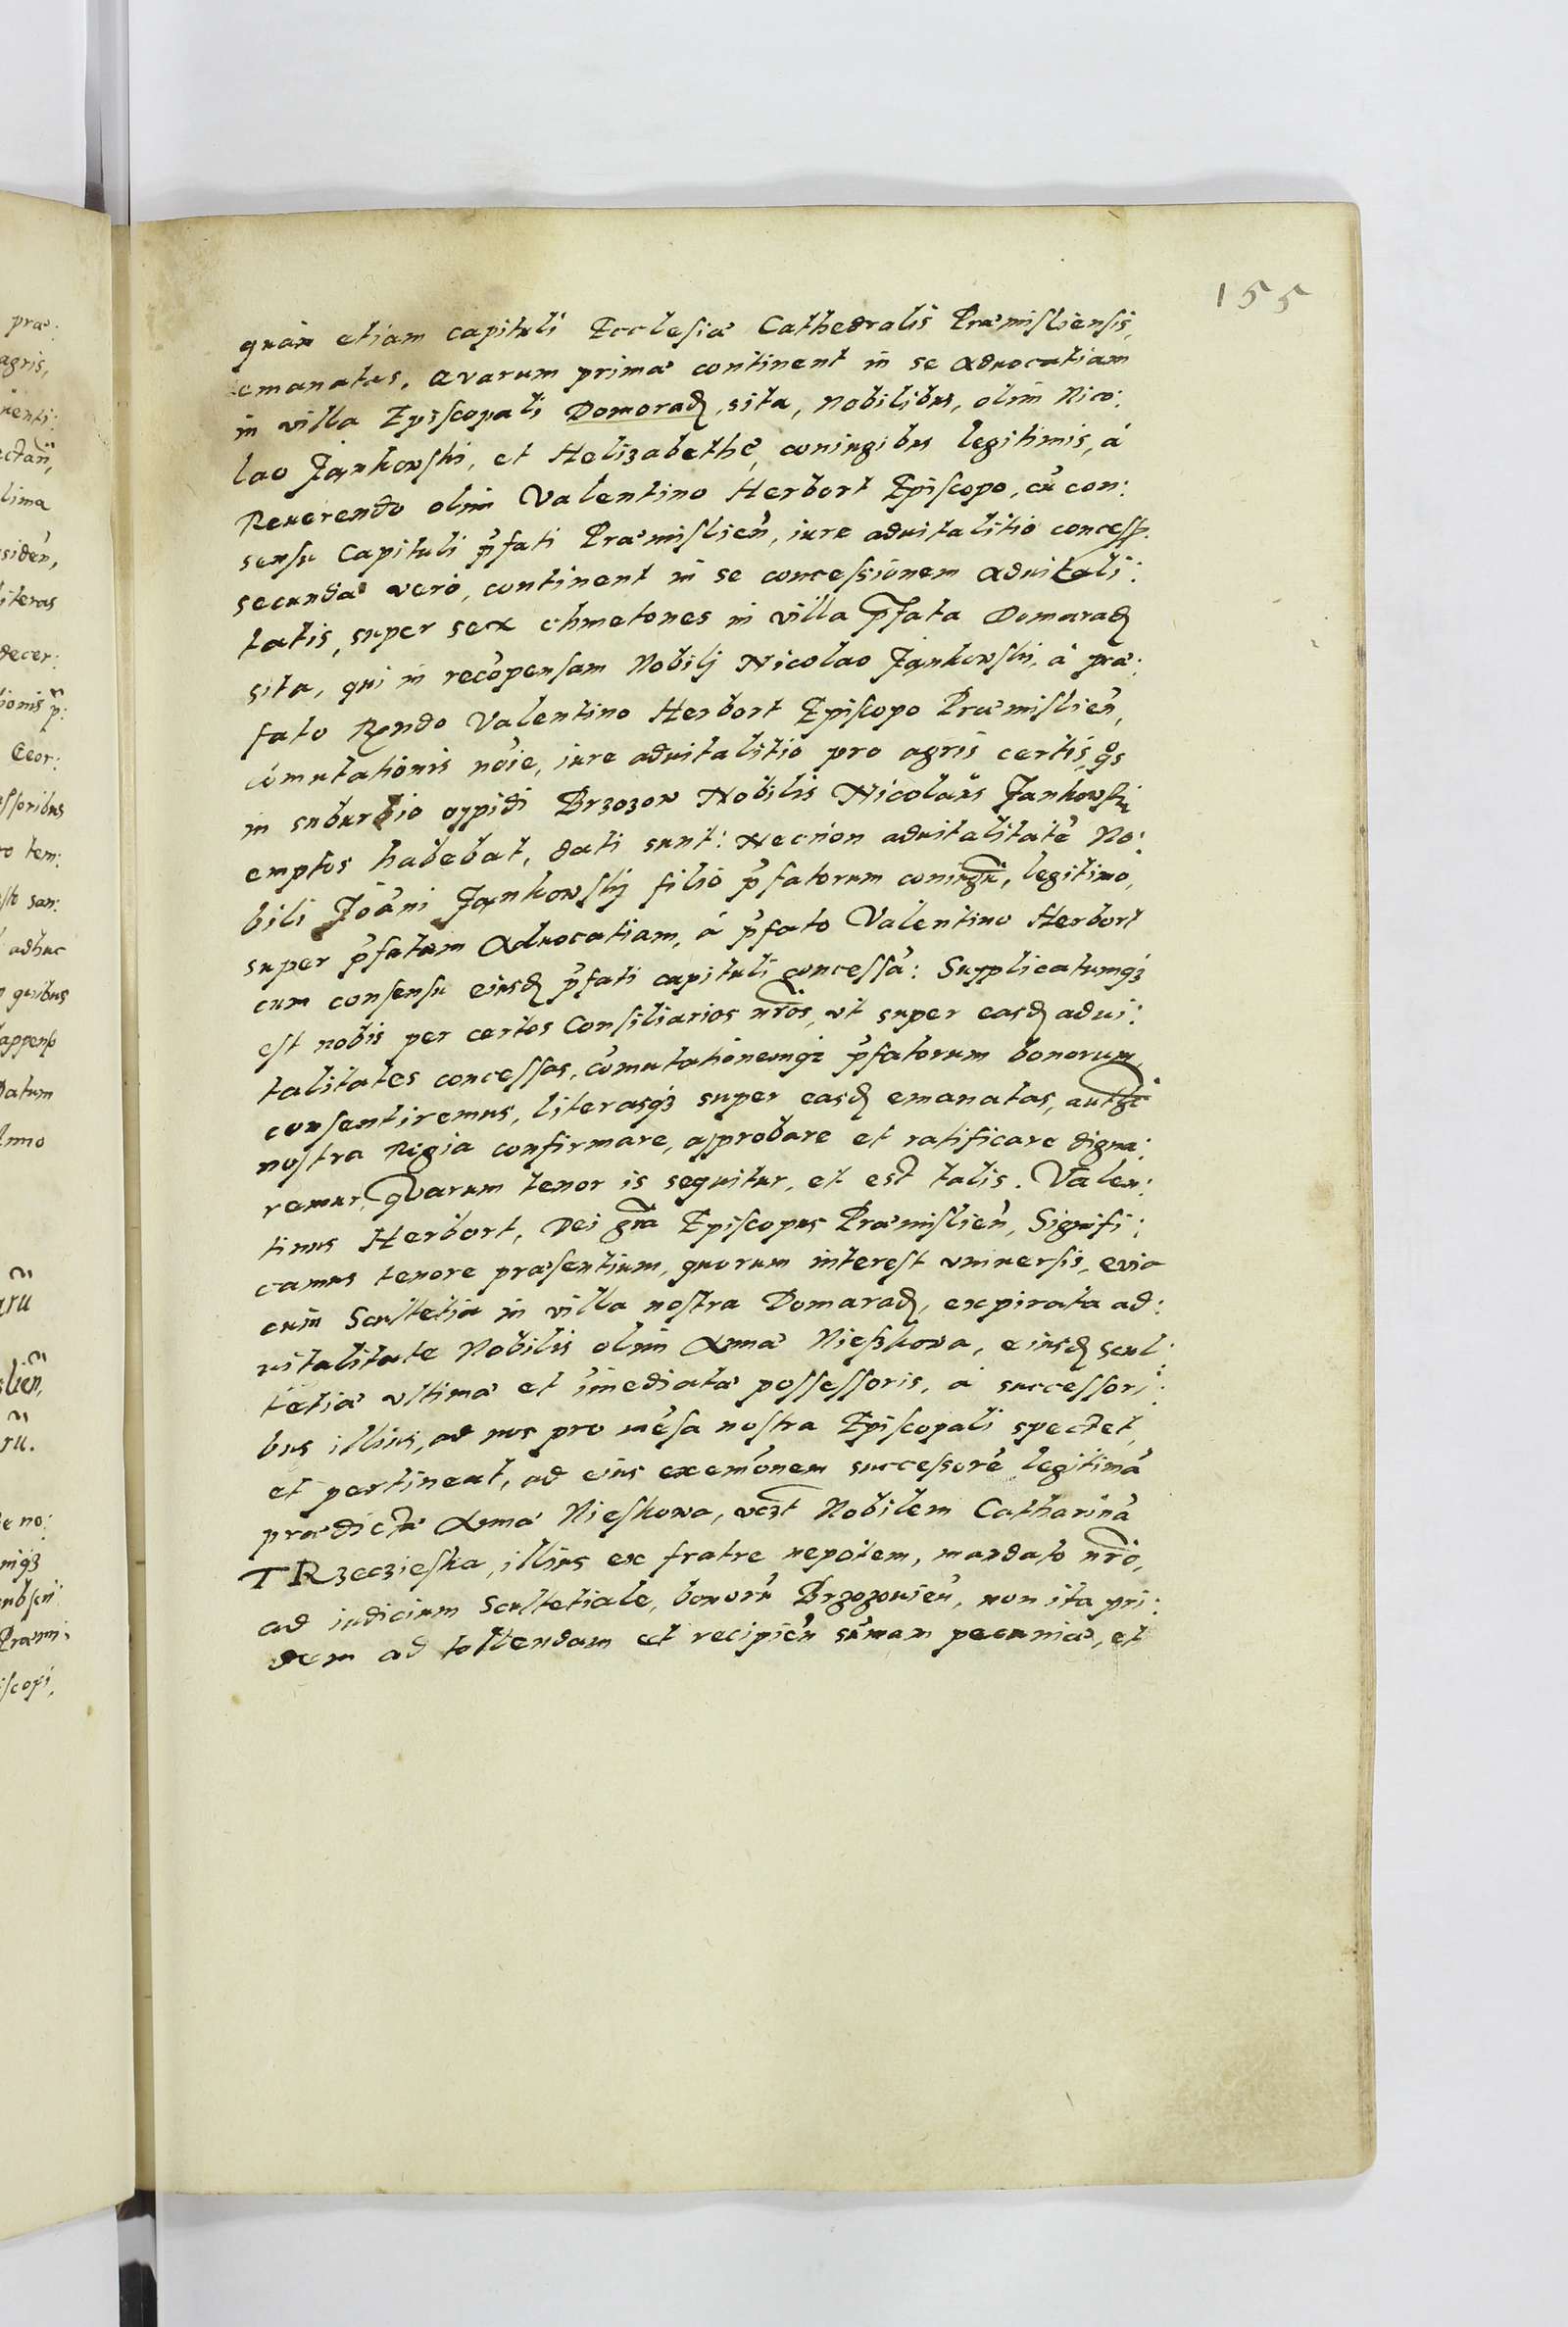 155
quàm etiam capituli Ecclesiæ Cathedralis Præmisliensis,
emanatas, Qvarum primæ continent in se aduocatiam
in villa Episcopali Domoradz, sita, Nobilibus, olim Nico:
lao Jankowski, et Helizabethę, coniugibus legitimis, á
Reuerendo olim Valentino Herbort Episcopo, cũ con:
sensu Capituli p̃fati Præmislieñ, iure aduitalitio concess.
secundæ verò, continent in se concessionem aduitali:
tatis, super sex chmetones in villa p̃fata Domaradz
sita, qui in recõpensam Nobilj Nicolao Jankowski, á præ:
fato Rẽndo Valentino Herbort Episcopo Præmislieñ,
cõmutationis nõie, iure aduitalitio pro agris certis, q̊s
in suburbio oppidi Brzozow Nobilis Nicolaus Jankowski
emptos habebat, dati sunt: Necnon aduitalitatẽ No:
bili Joãni Jankowskj filio p̃fatorum coniugũ, legitimo,
super p̃fatam Aduocatiam, á p̃fato Valentino Herbort
cum consensu eiusdẽ p̃fati capituli concessã: Supplicatumq3
est nobis per certos Consiliarios nr̃os, vt super easdẽ adui:
talitates concessas, cõmutationemq3 p̃fatorum bonorum,
consentiremus, literasq3 super easdẽ emanatas, autẽ
nostra Regia confirmare, approbare et ratificare digna:
remur, qVarum tenor is sequitur, et est talis. Valen:
tinus Herbort, Dei grã Episcopus Præmislieñ, Signifi:
camus tenore præsentium, quorum interest vniuersis, qvia
cum Scultetia in villa nostra Domaradz, expirata ad:
uitalitate Nobilis olim Annæ Nieskowa, eiusdẽ scul:
tetiæ vltimæ et imẽdiatæ possessoris, á successori:
bus illius, ad nos pro mẽsa nostra Episcopali spectet,
et pertineat, ad eius exemõnem successorẽ legitimã
prædictæ Annæ Nieskowa, vczt Nobilem Catharinã
TRzeczieska, illius ex fratre nepotem, mandato nr̃o,
ad iudicium Scultetiale, bonorũ Brzozowieñ, non ita pri:
dem ad tollendam et recipieñ sũmam pecuniæ, et